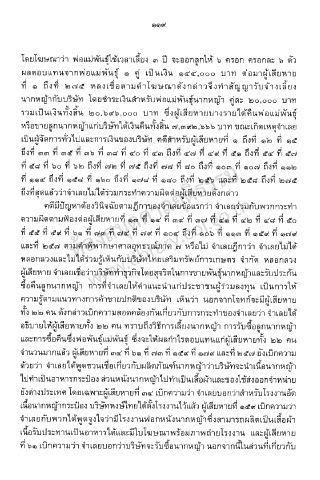 ๑๑๙
โดยโฆษณาว่า พ่อแม่พันธุ์ใช้เวลาเลี้ยง ๓ ปี จะออกลูกให้ ๖ ครอก ครอกละ ๖ ตัว
ผลตอบแทนจากพ่อแม่พันธุ์ ๑ คู่ เป็นเงิน ๑๔๔,๐๐๐ บาท ต่อมาผู้เสียหาย
ที่ ๑ ถึงที่ ๒๗๕ หลงเชื่อตามคำโฆษณาดังกล่าวจึงทำสัญญารับจ้างเลี้ยง
นากหญ้ากับบริษัท โดยชำระเงินสำหรับพ่อแม่พันธุ์นากหญ้า คู่ละ ๒๐,๐๐๐ บาท
รวมเป็นเงินทั้งสิ้น ๒๐,๖๙๖,๐๐๐ บาท ซึ่งผู้เสียหายบางรายได้คืนพ่อแม่พันธุ์
หรือขายลูกนากหญ้าแก่บริษัทได้เงินคืนทั้งสิ้น ๗,๓๙๒,๖๖๖ บาท ขณะเกิดเหตุจำเลย
เป็นผู้จัดการทั่วไปและการเงินของบริษัท คดีสำหรับผู้เสียหายที่ ๑ ถึงที่ ๑๒ ที่ ๑๕
ถึงที่ ๓๓ ที่ ๓๕ ที่ ๓๖ ที่ ๓๙ ที่ ๔๐ ที่ ๔๓ ถึงที่ ๔๗ ที่ ๔๙ ที่ ๕๑ ถึงที่ ๕๔ ที่ ๕๗
ถึงที่สุดแล้วว่าจำเลยไม่ได้ร่วมกระทำความผิดต่อผู้เสียหายดังกล่าว
คดีมีปัญหาต้องวินิจฉัยตามฎีกาของจำเลยข้อแรกว่า จำเลยร่วมกับพวกกระทำ
และที่ ๒๕๗ ตามคำพิพากษาศาลอุทธรณ์ภาค ๗ หรือไม่ จำเลยฎีกาว่า จำเลยไม่ได้
หลอกลวงและไม่ได้ร่วมรู้เห็นกับบริษัทไทยเสริมทรัพย์การเกษตร จำกัด หลอกลวง
ผู้เสียหาย จำเลยเชื่อว่าบริษัททำธุรกิจโดยสุจริตในการขายพันธุ์นากหญ้าและรับประกัน
ซื้อคืนลูกนากหญ้า การที่จำเลยให้คำแนะนำแก่ประชาชนผู้ร่วมลงทุน เป็นการให้
ความรู้ตามแนวทางการค้าขายปกติของบริษัท เห็นว่า นอกจากโจทก์จะมีผู้เสียหาย
ทั้ง ๒๒ คน ดังกล่าวเบิกความสอดคล้องกันเกี่ยวกับการกระทำของจำเลยว่า จำเลยได้
อธิบายให้ผู้เสียหายทั้ง ๒๒ คน ทราบถึงวิธีการเลี้ยงนากหญ้า การรับซื้อลูกนากหญ้า
และการซื้อคืนซึ่งพ่อพันธุ์แม่พันธุ์ ซึ่งจะได้ผลกำไรตอบแทนแก่ผู้เสียหายทั้ง ๒๒ คน
จำนวนมากแล้ว ผู้เสียหายที่ ๓๔ ที่ ๖๑ ที่ ๗๓ ที่ ๑๕๙ ที่ ๑๗๙ และที่ ๒๕๗ ยังเบิกความ
ด้วยว่า จำเลยได้พูดชวนเชื่อเกี่ยวกับผลิตภัณฑ์นากหญ้าว่าบริษัทจะนำเนื้อนากหญ้า
ไปทำเป็นอาหารกระป๋อง ส่วนหนังนากหญ้าไปทำเป็นเสื้อผ้าและของใช้ส่งออกจำหน่าย
ยังต่างประเทศ โดยเฉพาะผู้เสียหายที่ ๓๔ เบิกความว่า จำเลยบอกว่าสำหรับโรงงานอัด
เนื้อนากหญ้ากระป๋อง บริษัทหงษ์ไทยได้ตั้งโรงงานไว้แล้ว ผู้เสียหายที่ ๑๕๙ เบิกความว่า
จำเลยกับพวกได้พูดจูงใจว่ามีโรงงานฟอกหนังนากหญ้าซึ่งสามารถผลิตเป็นเสื้อผ้า
เนื้อรับประทานเป็นอาหารได้และมีใบโฆษณาพร้อมภาพถ่ายโรงงาน และผู้เสียหาย
ที่ ๖๑ เบิกความว่า จำเลยบอกว่าบริษัทจะรับซื้อนากหญ้า นอกจากนี้ในส่วนที่เกี่ยวกับ